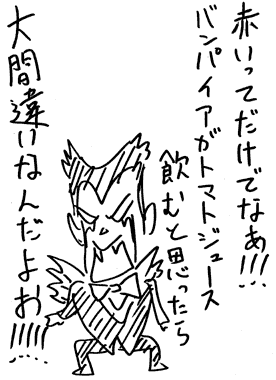 赤いってだけでなぁ!!!
バンパイアがトマトジュース
飲むと思ったら
大間違いなんだよお!!!!!